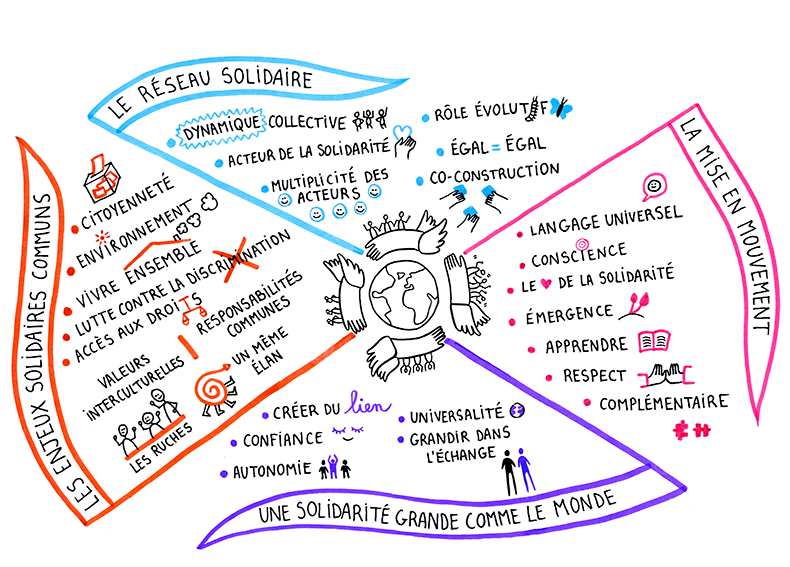 LE RÉSEAU SOLIDAIRE
DYNAMIQUE COLLECTIVE
ACTEUR DE LA SOLIDARITÉ
MULTIPLICITÉ DES
ACTEURS
RÔLE ÉVOLUTIF
ÉGAL = ÉGAL
CO-CONSTRUCTION
LA MISE EN MOUVEMENT
LANGAGE UNIVERSEL
CONSCIENCE
LE ♥ DE LA SOLIDARITÉ
ÉMERGENCE
APPRENDRE
RESPECT
COMPLÉMENTAIRE
UNE SOLIDARITÉ GRANDE COMME LE MONDE
CRÉER DU lien
CONFIANCE
AUTONOMIE
UNIVERSALITÉ
GRANDIR DANS
L'ÉCHANGE
LES ENJEUX SOLIDAIRES COMMUNS
CITOYENNETÉ
ENVIRONNEMENT
VIVRE ENSEMBLE
LUTTE CONTRE LA DISCRIMINATION
ACCÈS AUX DROITS
RESPONSABILITÉS
COMMUNES
VALEURS
INTERCULTURELLES
UN MÊME
ÉLAN
LES RUCHES